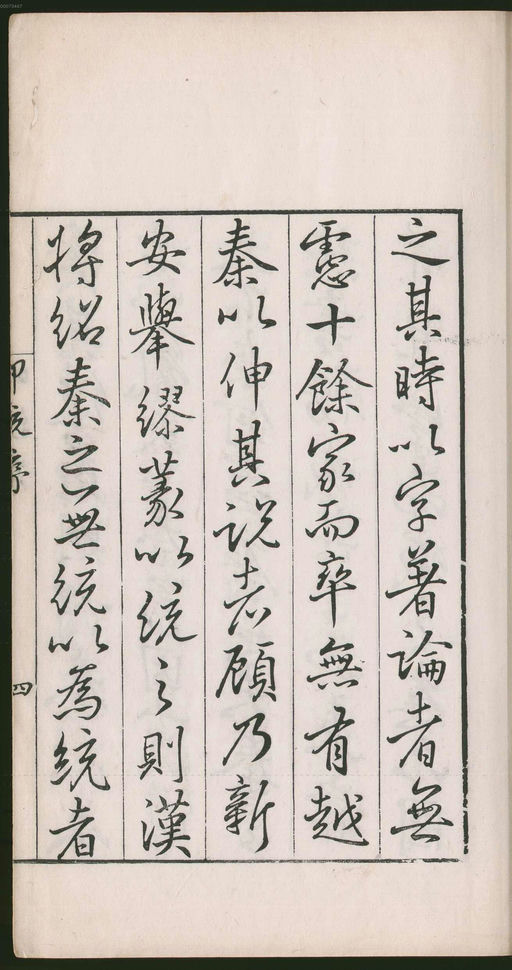 之其時以字著論者無
慮十餘家而卒無有越
秦以伸其説者顧乃新
安舉繆篆以統之則漢
將紹秦之以無統以為統者
印統序
四
00073447